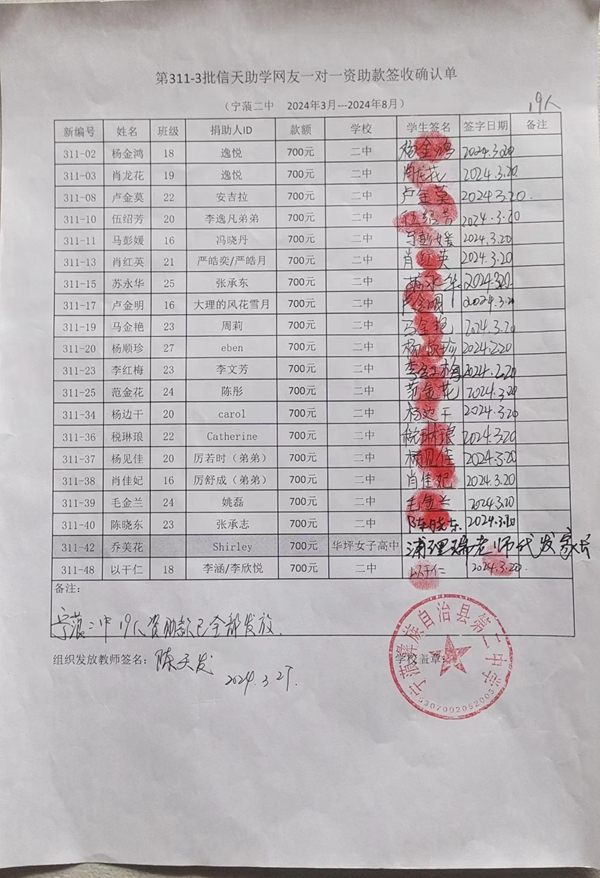 第311-3批信天助学网友一对一资助款签收确认单
（宁蒗二中 2024年3月---2024年8月）
19人
新编号 姓名 班级 捐助人ID 款额 学校 学生签名 签字日期 备注
311-02 杨金鸿 18 逸悦 700元 二中 杨金鸿 2024.3.20
311-03 肖龙花 19 逸悦 700元 二中 肖龙花 2024.3.20
311-08 卢金莫 22 安吉拉 700元 二中 卢金莫 2024.3.20.
311-10 伍绍芳 20 李逸凡弟弟 700元 二中 伍绍芳 2024.3.20
311-11 马彭媛 16 冯晓丹 700元 二中 马彭媛 2024.3.20
311-13 肖红英 21 严皓奕/严皓月 700元 二中 肖红英 2024.3.20
311-15 苏永华 25 张承东 700元 二中 苏永华 2024.3.20
311-17 卢金明 16 大理的风花雪月 700元 二中 卢金明 2024.3.20
311-19 马金艳 23 周莉 700元 二中 马金艳 2024.3.20
311-20 杨顺珍 27 eben 700元 二中 杨顺珍 2024.2.20
311-23 李红梅 23 李文芳 700元 二中 李红梅 2024.2.20
311-25 范金花 24 陈彤 700元 二中 范金花 2024.3.20
311-34 杨边干 20 carol 700元 二中 杨边干 2024.3.20
311-36 税琳琅 22 Catherine 700元 二中 税琳琅 2024.3.20
311-37 杨见佳 20 厉若时（弟弟） 700元 二中 杨见佳 2024.3.20
311-38 肖佳妃 16 厉舒成（弟弟） 700元 二中 肖佳妃 2024.3.20
311-39 毛金兰 24 姚磊 700元 二中 毛金兰 2024.3.20
311-40 陈晓东 23 张承志 700元 二中 陈晓东 2024.3.20
311-42 乔美花 Shirley 700元 华坪女子高中 老师代发家长
311-48 以干仁 18 李涵/李欣悦 700元 二中 以干仁 2024.3.20
备注：
宁蒗二中19人资助款已全部发放.
组织发放教师签名：陈天发 学校盖章：
2024.3.27.
宁蒗彝族自治县第二中学